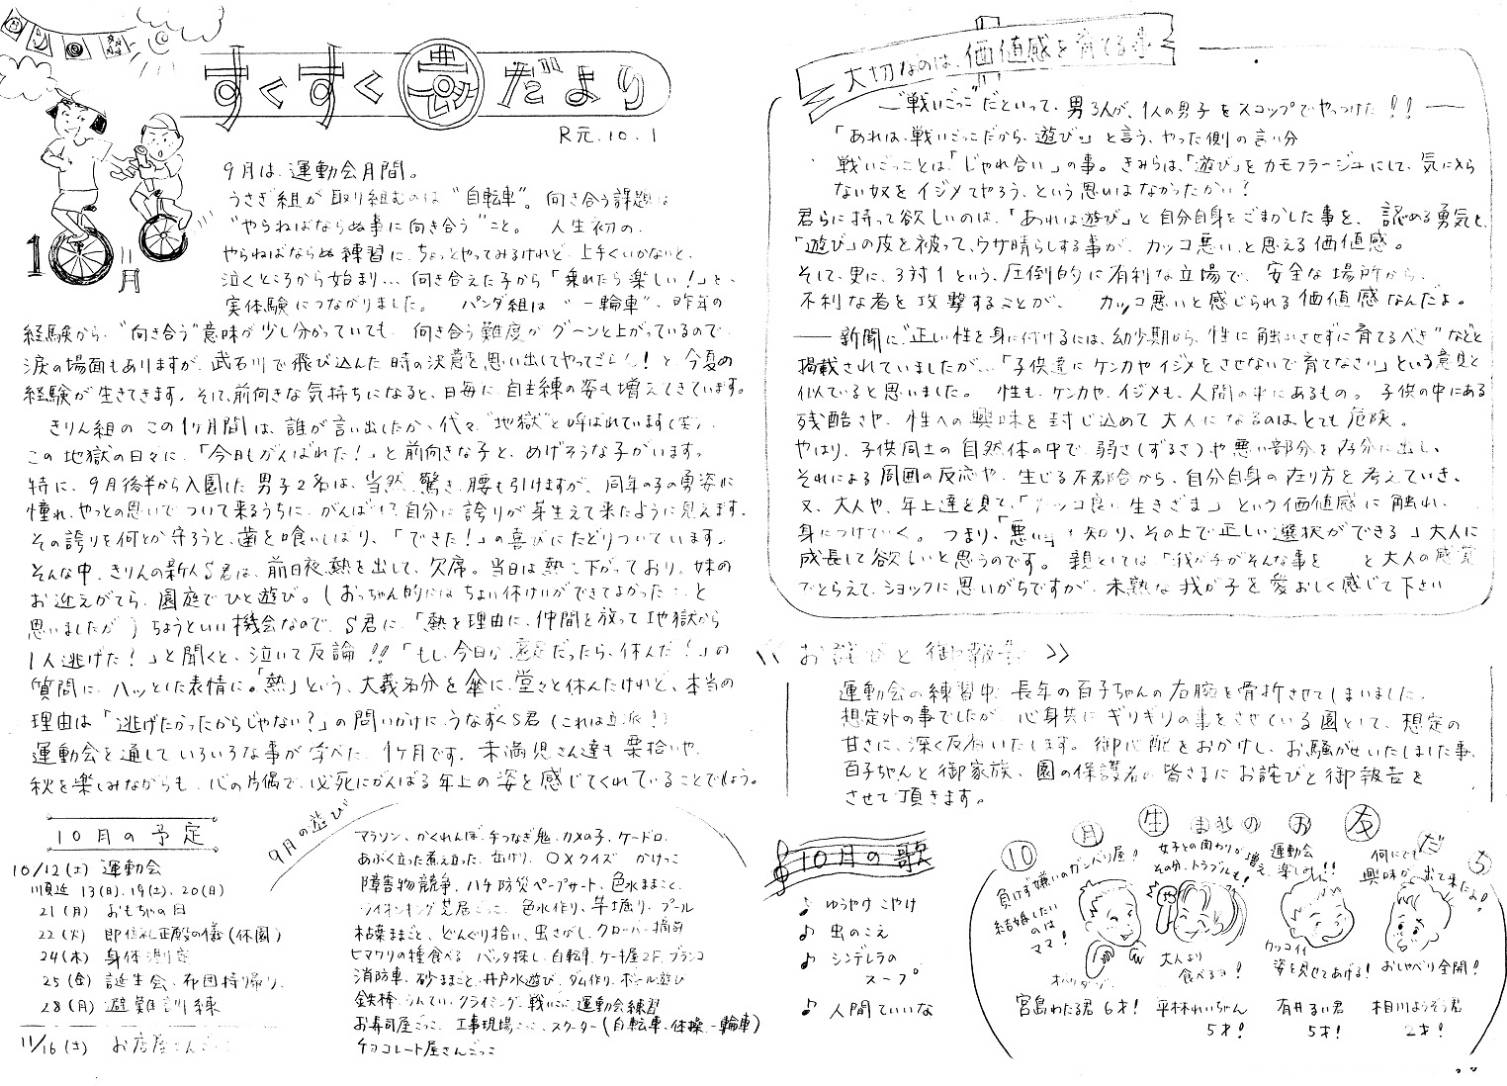 すくすく夢だより
R元.10.1
10月
9月は、運動会月間。
うさぎ組が取り組むのは“自転車”。向き合う課題は
“やらねばならぬ事に向き合う”こと。人生初の、
やらねばならぬ練習に、ちょっとやってみるけれど、上手くいかないと、
泣くところから始まり…向き合えた子から「乗れたら楽しい！」と、
実体験につながりました。パンダ組は“一輪車”、昨年の
経験から、“向き合う”意味が少し分かっていても、向き合う難度がグーンと上がっているので
涙の場面もありますが、武石川で飛び込んだ時の決意を思い出してやってごらん！と、今夏の
経験が生きてきます。そして、前向きな気持ちになると、日毎に自主練の姿も増えてきています。
きりん組のこの1ヶ月間は、誰が言い出したか、代々“地獄”と呼ばれています(笑)
この地獄の日々に、「今日もがんばれた！」と前向きな子と、めげそうな子がいます。
特に、9月後半から入園した男子2名は、当然、驚き、腰も引けますが、同年の子の勇姿に
憧れ、やっとの思いでついて来るうちに、がんばれる自分に誇りが芽生えて来たように見えます。
その誇りを何とか守ろうと、歯を喰いしばり、「できた！」の喜びにたどりついています。
そんな中、きりんの新人S君は、前日夜、熱を出して、欠席。当日は熱も下がっており、妹の
お迎えがてら、園庭でひと遊び。(おっちゃん的には、ちょい休けいができてよかった と
思いましたが)ちょうどいい機会なので、S君に、「熱を理由に、仲間を放って地獄から
1人逃げた！」と聞くと、泣いて反論!!「もし、今日が遠足だったら、休んだ？」の
質問に、ハッとした表情に。「熱」という、大義名分を傘に、堂々と休んだけれど、本当の
理由は「逃げたかったからじゃない？」の問いかけに、うなずくS君(これは立派！)
運動会を通していろいろな事が学べた、1ヶ月です。未満児さん達も栗拾いや、
秋を楽しみながらも、心の片隅で、必死にがんばる年上の姿を感じてくれていることでしょう。
10月の予定
10/12(土) 運動会
順延 13(日)、19(土)、20(日)
21(月) おもちゃの日
22(火) 即位礼正殿の儀(休園)
24(木) 身体測定
25(金) 誕生会、布団持ち帰り
28(月) 避難訓練
11/16(土) お店屋さんごっこ
9月の遊び
マラソン、かくれんぼ、手つなぎ鬼、カメの子、ケードロ、
あぶく立った煮え立った、缶けり、○×クイズ かけっこ
障害物競争、ハチ防災ペープサート、色水ままごと、
ライオンキング芝居ごっこ、色水作り、芋堀り、プール
枯葉ままごと、どんぐり拾い、虫さがし、クローバー摘み
ヒマワリの種食べる バッタ探し、自転車、ケーキ屋2F、ブランコ
消防車、砂ままごと、井戸水遊び、ダム作り、ボール遊び
鉄棒、うんてい、クライミング、戦いごっこ、運動会練習
お寿司屋ごっこ、工事現場ごっこ、スクーター(自転車、体操、一輪車)
チョコレート屋さんごっこ
大切なのは、価値感を育てる事
―“戦いごっこ”だといって、男3人が、1人の男子をスコップでやっつけた!!―
「あれは、戦いごっこだから、遊び」と言う、やった側の言い分
戦いごっことは「じゃれ合い」の事。きみらは、「遊び」をカモフラージュにして、気に入ら
ない奴をイジメてやろう、という思いはなかったかい？
君らに持って欲しいのは、「あれは遊び」と自分自身をごまかした事を、認める勇気と、
「遊び」の皮を被って、ウサ晴らしする事が、カッコ悪い、と思える価値感。
そして、更に、3対1という、圧倒的に有利な立場で、安全な場所から、
不利な者を攻撃することが、カッコ悪いと感じられる価値感なんだよ。
―新聞に、“正しい性を身に付けるには、幼少期から、性に触れさせずに育てるべき”などと
掲載されていましたが…「子供達にケンカやイジメをさせないで育てなさい」という意見と
似ていると思いました。性も、ケンカや、イジメも、人間の中にあるもの。子供の中にある
残酷さや、性への興味を封じ込めて大人になるのは、とても危険。
やはり、子供同士の自然体の中で、弱さ(ずるさ)や悪い部分を存分に出し、
それによる周囲の反応や、生じる不都合から、自分自身の在り方を考えていき、
又、大人や、年上達を見て、「カッコ良い生きざま」という価値感に触れ、
身につけていく。つまり、「悪い事を知り、その上で正しい選択ができる」大人に
成長して欲しいと思うのです。親としては「我が子がそんな事を と大人の感覚
でとらえて、ショックに思いがちですが、未熟な我が子を愛おしく感じて下さい
お詫びと御報告
運動会の練習中、長年の百子ちゃんの右腕を骨折させてしまいました。
想定外の事でしたが、心身共にギリギリの事をさせている園として、想定の
甘さに、深く反省いたします。御心配をおかけし、お騒がせいたしました事、
百子ちゃんと御家族、園の保護者の皆さまにお詫びと御報告を
させて頂きます。
10月の歌
♪ ゆうやけこやけ
♪ 虫のこえ
♪ シンデレラの
スープ
♪ 人間ていいな
10月生まれのお友だち
負けず嫌いのガンバリ屋！
結婚したい
のは
ママ！
宮島わたる君 6才！
女子との関わりが増え、
その分、トラブルも！
大人より
食べるヨ！
平林れいちゃん
5才！
運動会
楽しみ!!
カッコイイ
姿を見せてあげる！
有井るい君
5才！
何にでも
興味が出て来たよ！
おしゃべり全開！
相川ようぞう君
2才！